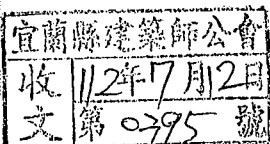 宜蘭縣建築師公會
收文
112年7月12日
第0395號